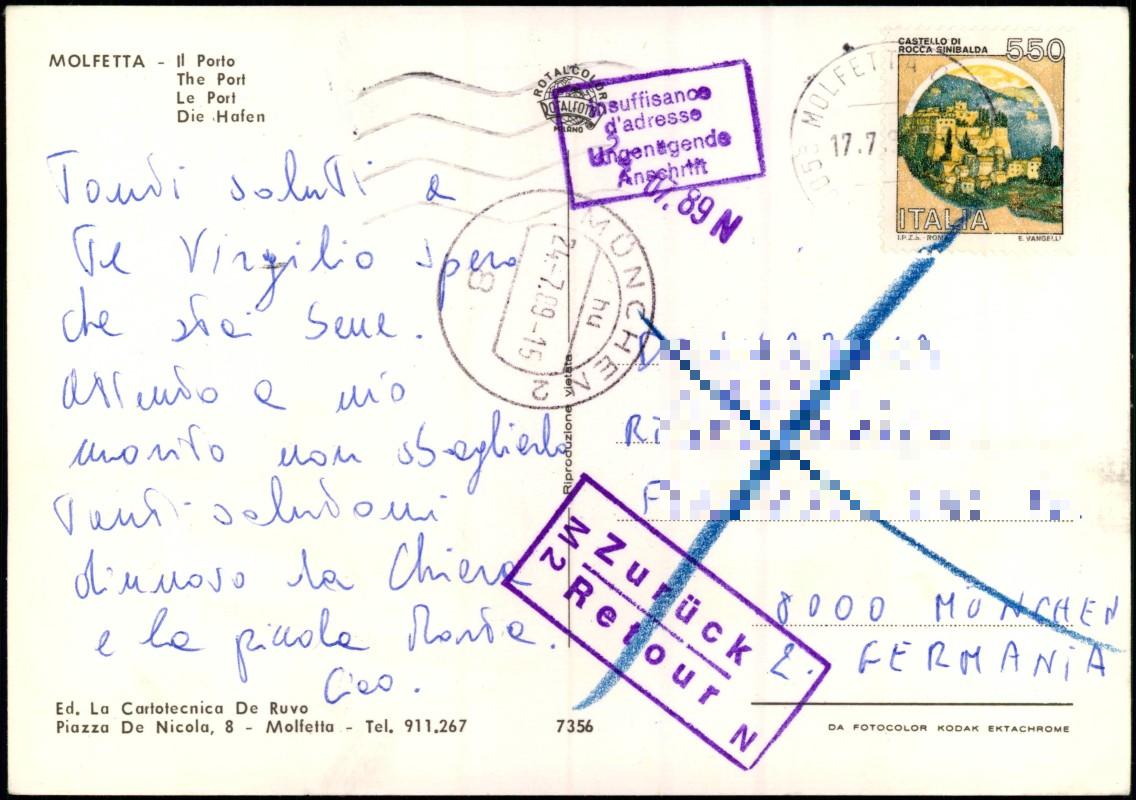 MOLFETTA - Il Porto
The Port
Le Port
Die Hafen
ROTALCOLOR
ROTALFOTO
MILANO
Insuffisance
d'adresse
Ungenügende
Anschrift
89 N
MOLFETTA
17.7
CASTELLO DI
ROCCA SINIBALDA 550
ITALIA
I.P.Z.S. ROMA E. VANGELLI
MÜNCHEN 2
24.-7.89-15
hu
8
Tanti saluti a
Te Virgilio spero
che stai bene.
Attento a mio
marito non sbagliarlo
Tanti saludoni
dinuovo la Chiara
e la piccola
Ciao.
Riproduzione vietata
Zurück
Retour
M2
N
8000 MÜNCHEN
2. GERMANIA
Ed. La Cartotecnica De Ruvo
Piazza De Nicola, 8 - Molfetta - Tel. 911.267
7356
DA FOTOCOLOR KODAK EKTACHROME